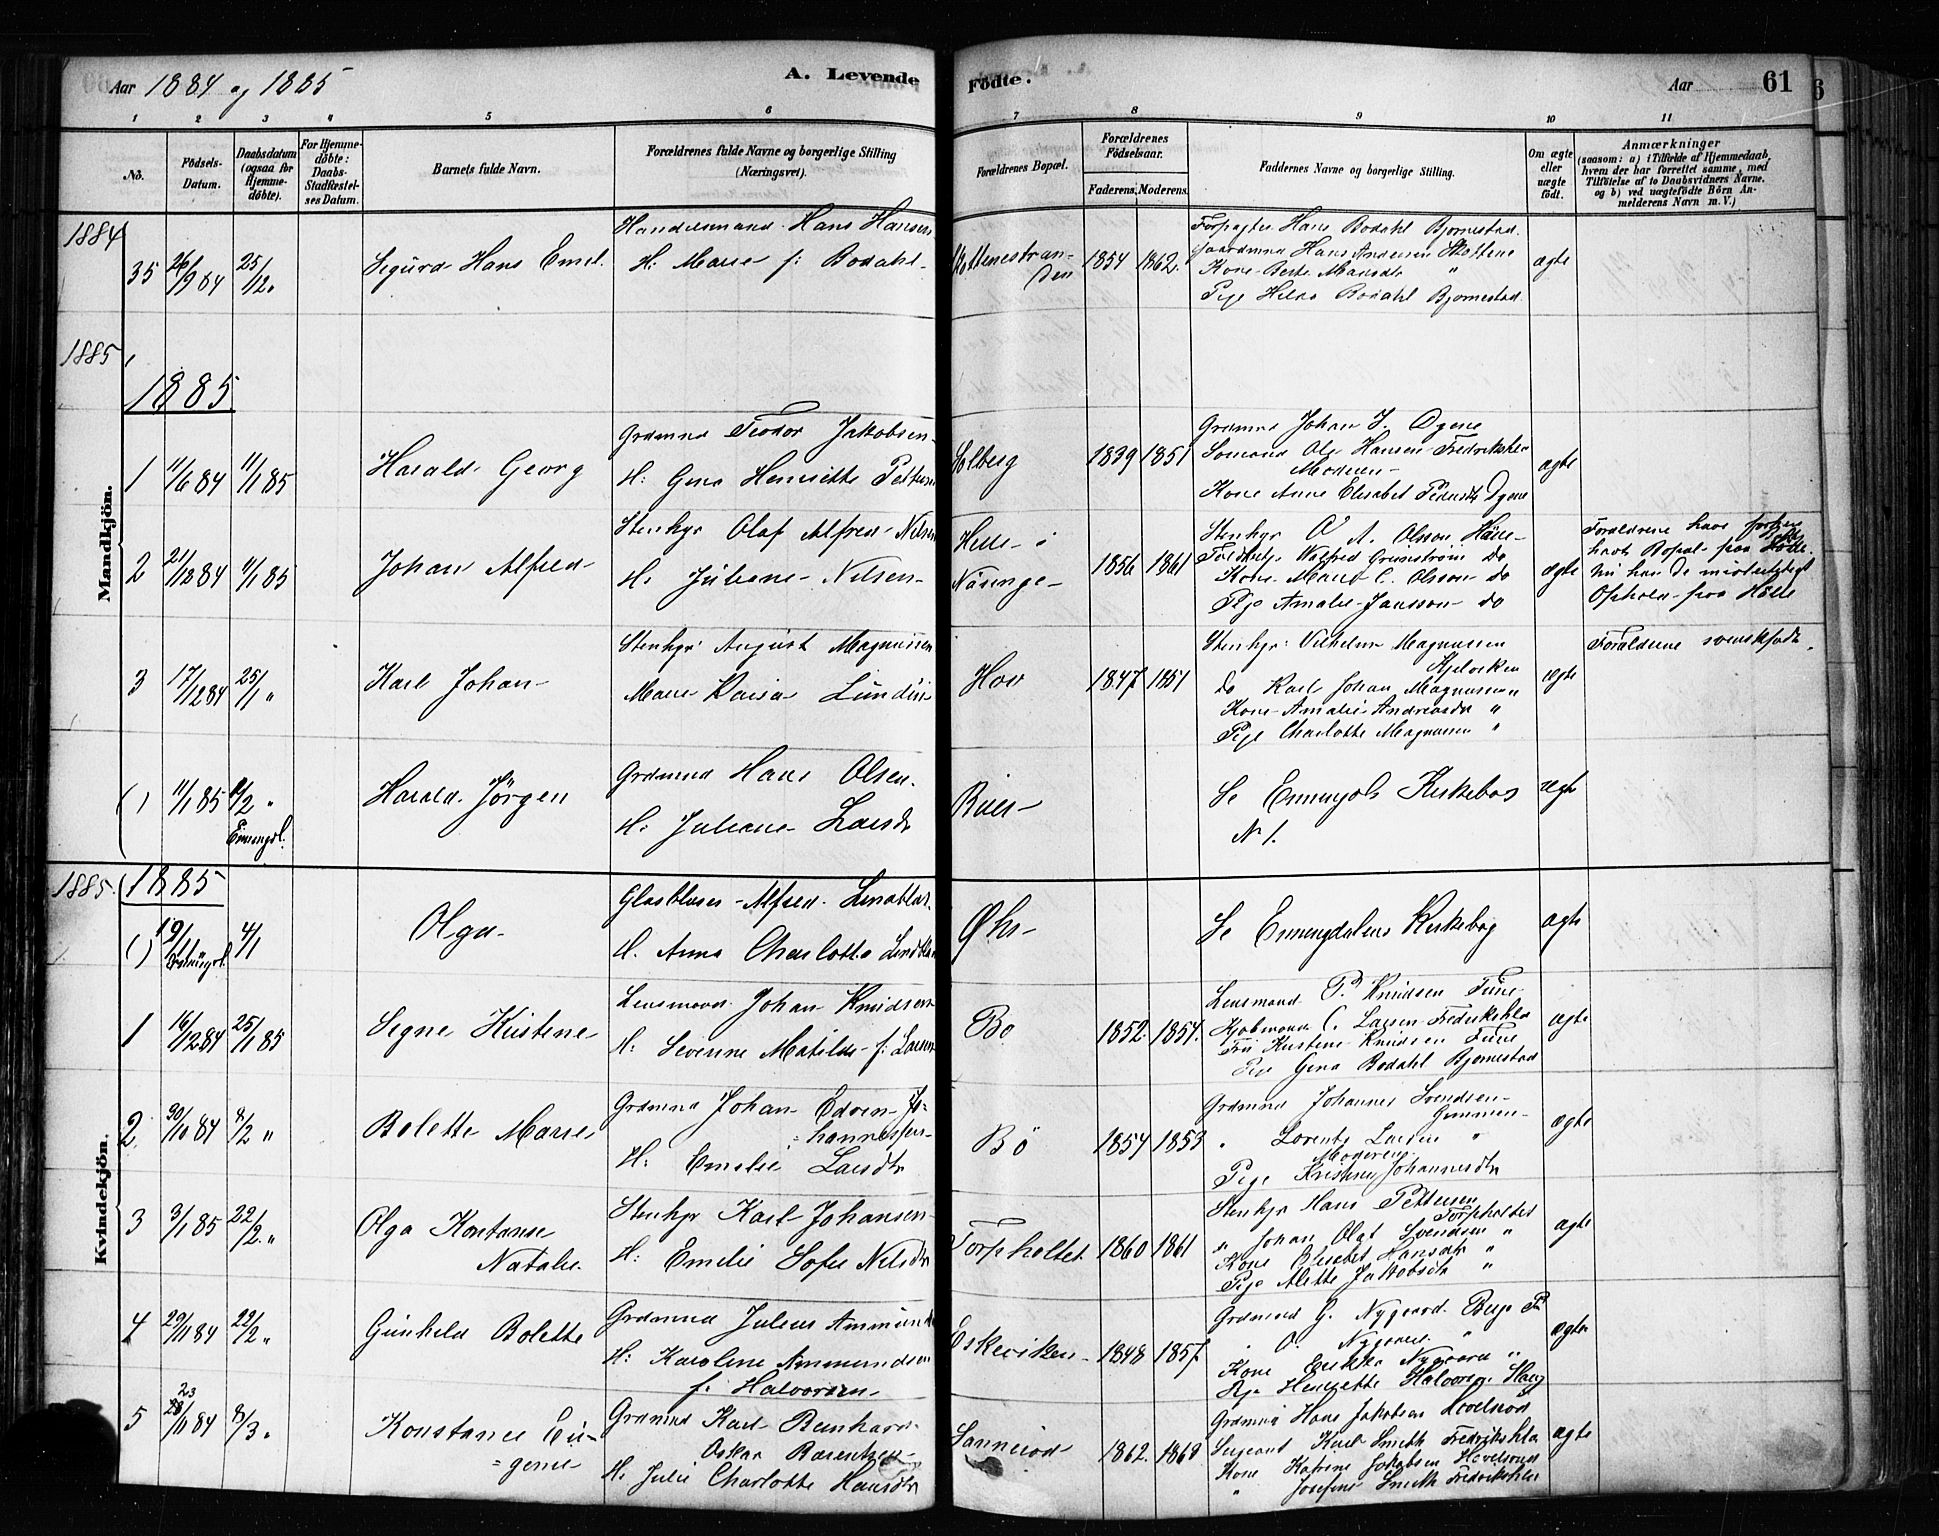 Aar 1884 og 1885
A. Levende
Fødte.
Aar
61
1 2 3 4 5 6 7 8 9 10 11
No.
Fødsels-Datum.
Daabsdatum (ogsaa for Hjemmedøbte).
For Hjemmedøbte: Daabs-Stadfæstelses Datum.
Barnets fulde Navn.
Forældrenes fulde Navne og borgerlige Stilling
(Næringsvei).
Forældrenes Bopæl.
Forældrenes Fødselsaar.
Faderens. Moderens.
Faddernes Navne og borgerlige Stilling.
Om ægte eller uægte født.
Anmærkninger
(saasom: a) i Tilfælde af Hjemmedaab, hvem der har forrettet samme, med Tilføielse af to Daabsvidners Navne. og b) ved uægtefødte Børn Anmelderens Navn m. V.)
Mandkjøn.
1884
35 26/9 84 25/12 Sigurd Hans Emil.
Handelsmand Hans Hansen
H: Marie f: Bodahl
1854 1862.
Forpagter Hans Bodahl Bjørnestad
Gaardmnd Hans Andersen
Kone Berte
Pige Bodahl Bjørnestad
ægte
1885
1885
1 11/6 84 11/1 85 Harald Georg
Grdmnd Teodor Jakobsen
H: Gina Henriette
Solberg 1839 1851
Grdmnd Johan J. Dyene
Hansen Fredrikshld
Moderen
Kone Anne Elisabet Dyene
ægte
2 21/12 84 11/1 85 Johan Alfred
Stenhgr Olaf Alfred Nilsen
H: Juliane Nilsen
Helle i
Näsinge
1856 1861
Stenhgr O. A. Olsson Hälle
do
Kone C. Olsson do
Pige Amalie Jansson do
ægte
Forældrene have
havt Bopæl paa
nu har de midlertidigt
Ophold paa Hälle
3 17/12 84 25/1 " Karl Johan
Stenhgr August Magnussen
Marie Kaisa
Hov 1847 1854
Stenhgr Vilhelm Magnussen
do Karl Johan Magnussen "
Kone Amalie Andreasdr "
Pige Charlotte Magnussen "
ægte
Forældrene svenskfødt.
( ) 11/1 85 /2 " Harald Jørgen
Enningdl.
Grdmnd Hans Olsen
H: Juliane Larsdr
Buer
Se Enningdls Kirkebog
N 1.
ægte
Kvindekjøn.
1885. 1885
( ) 4/1 Olga
Glasblæser Alfred Lindblad
H. Anna Charlotta Lindblad
Øhs
Se Enningdalens Kirkebog
ægte
1 16/12 84 25/1 85 Signe Kristine
Lensmand Johan Knudsen
H: Severine Matilde f: Larsen
Bø 1852. 1854.
Lensmand P. Knudsen
Kjøbmand C. Larsen Fredrikshld
Fru Kirstine Knudsen
Pige Gina Bodahl Bjørnestad
ægte
2. 30/10 84 8/2 " Bolette Marie
Grdmnd Johan Edvin Jo=
=hannessen
H: Emelie Larsdr
Bö 1854 1853
Grdmnd Johannes Svendsen
" Lorents Larsen "
Moderen
Pige Kristine Johannesdtr
ægte
3 3/1 85 22/2 " Olga Konstanse
Natalie
Stenhgr Karl Johansen
H: Emelie Sofie Nilsdr
Torpholtet 1860 1861
Stenhgr Hans Pettersen
Torpholtet
" Johan Olaf Svendsen "
Kone Elisabet Hansdtr "
Pige Alette Jakobsdtr "
ægte
4 29/11 84 22/2 " Gunhild Bolette
Grdmnd Julius Ammunds
H: Karoline Ammundsen
f. Halvorsen
Eskeviken 1848 1857
Grdmnd G. Nygaard Berge
O. Nygaard "
Kone Nygaard "
Pige Henriette Halvorsen
ægte
5 23/11 84 8/3 " Konstance Eu=
=genie
Grdmnd Karl Reinhard
Oskar
H: Julie Charlotte Hansdtr
Sannerød 1862. 1868
Grdmnd Hans Jakobsen
Sergeant Karl Smith Fredrikshld
Kone Katrine Jakobsen
" Josefine Smith Fredrikshld
ægte